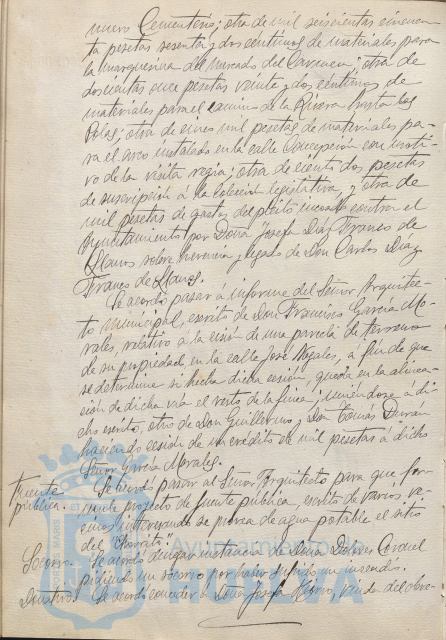 nuevo Cementerio; otra de mil seiscientas cincuen-
ta pesetas sesenta y dos céntimos de materiales para
la marquesina del mercado del Carmen; otra de
doscientas once pesetas veinte y dos céntimos de
materiales para el camino de la Rivera hasta las
Colas; otra de cinco mil pesetas de materiales pa-
ra el arco instalado en la calle Concepción con moti-
vo de la visita regia; otra de ciento dos pesetas
de suscripción á la Colección legislativa, y otra de
mil pesetas de gastos del pleito incoado contra el
Ayuntamiento por Doña Josefa Díaz Franco de
Llanos sobre herencia y legado de Don Carlos Díaz
Franco de Llanos.
Se acordó pasar á informe del Señor Arquitec-
to municipal, escrito de Don Francisco García Mo-
rales, relativo á la cesión de una parcela de terreno
de su propiedad, en la calle José Nogales, á fin de que
se determine si hecha dicha cesión, queda en la alinea-
ción de dicha vía el resto de la finca; uniéndose á di-
cho escrito, otro de Don Guillermo y Don Tomás Duran
haciendo cesión de un crédito de mil pesetas á dicho
Señor García Morales.
Fuente pública. Se acordó pasar al Señor Arquitecto para que for-
mule proyecto de fuente pública, escrito de varios ve-
cinos interesando se provea de agua potable el sitio
del "Chorrito".
Socorro. Se acordó denegar instancia de Doña Dolores Coronel
pidiendo un socorro por haber sufrido un incendio.
Donativo. Se acordó conceder á Doña Josefa viuda del obre-
Ayuntamiento de
HUELVA